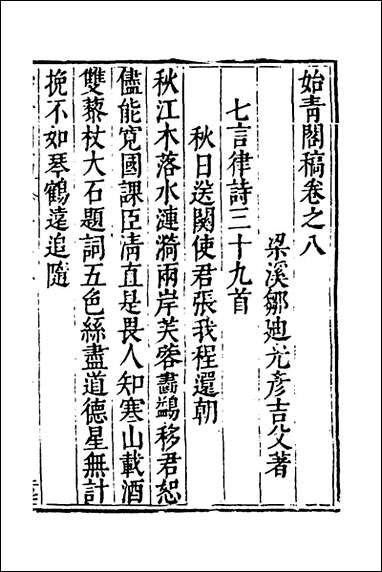 始青閣稿卷之八
梁溪鄒迪光彥吉父著
七言律詩三十九首
秋日送關使君張我程還朝
秋江木落水漣漪兩岸芙蓉畵鷁移君恕
儘能寬國課臣清直是畏人知寒山載酒
雙藜杖大石題詞五色絲盡道德星無計
挽不如琴鶴遠追隨